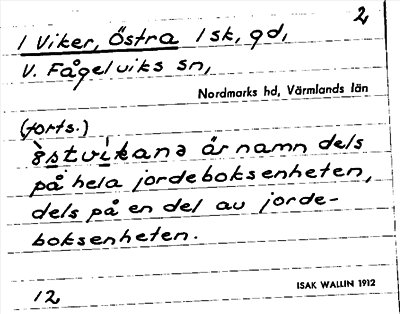 2
/ Viker, Östra 1 sk, gd,
V. Fågelviks sn,
Nordmarks hd, Värmlands län
(forts.)
är namn dels
på hela jordeboksenheten,
dels på en del av jorde-
boksenheten.
12
ISAK WALLIN 1912